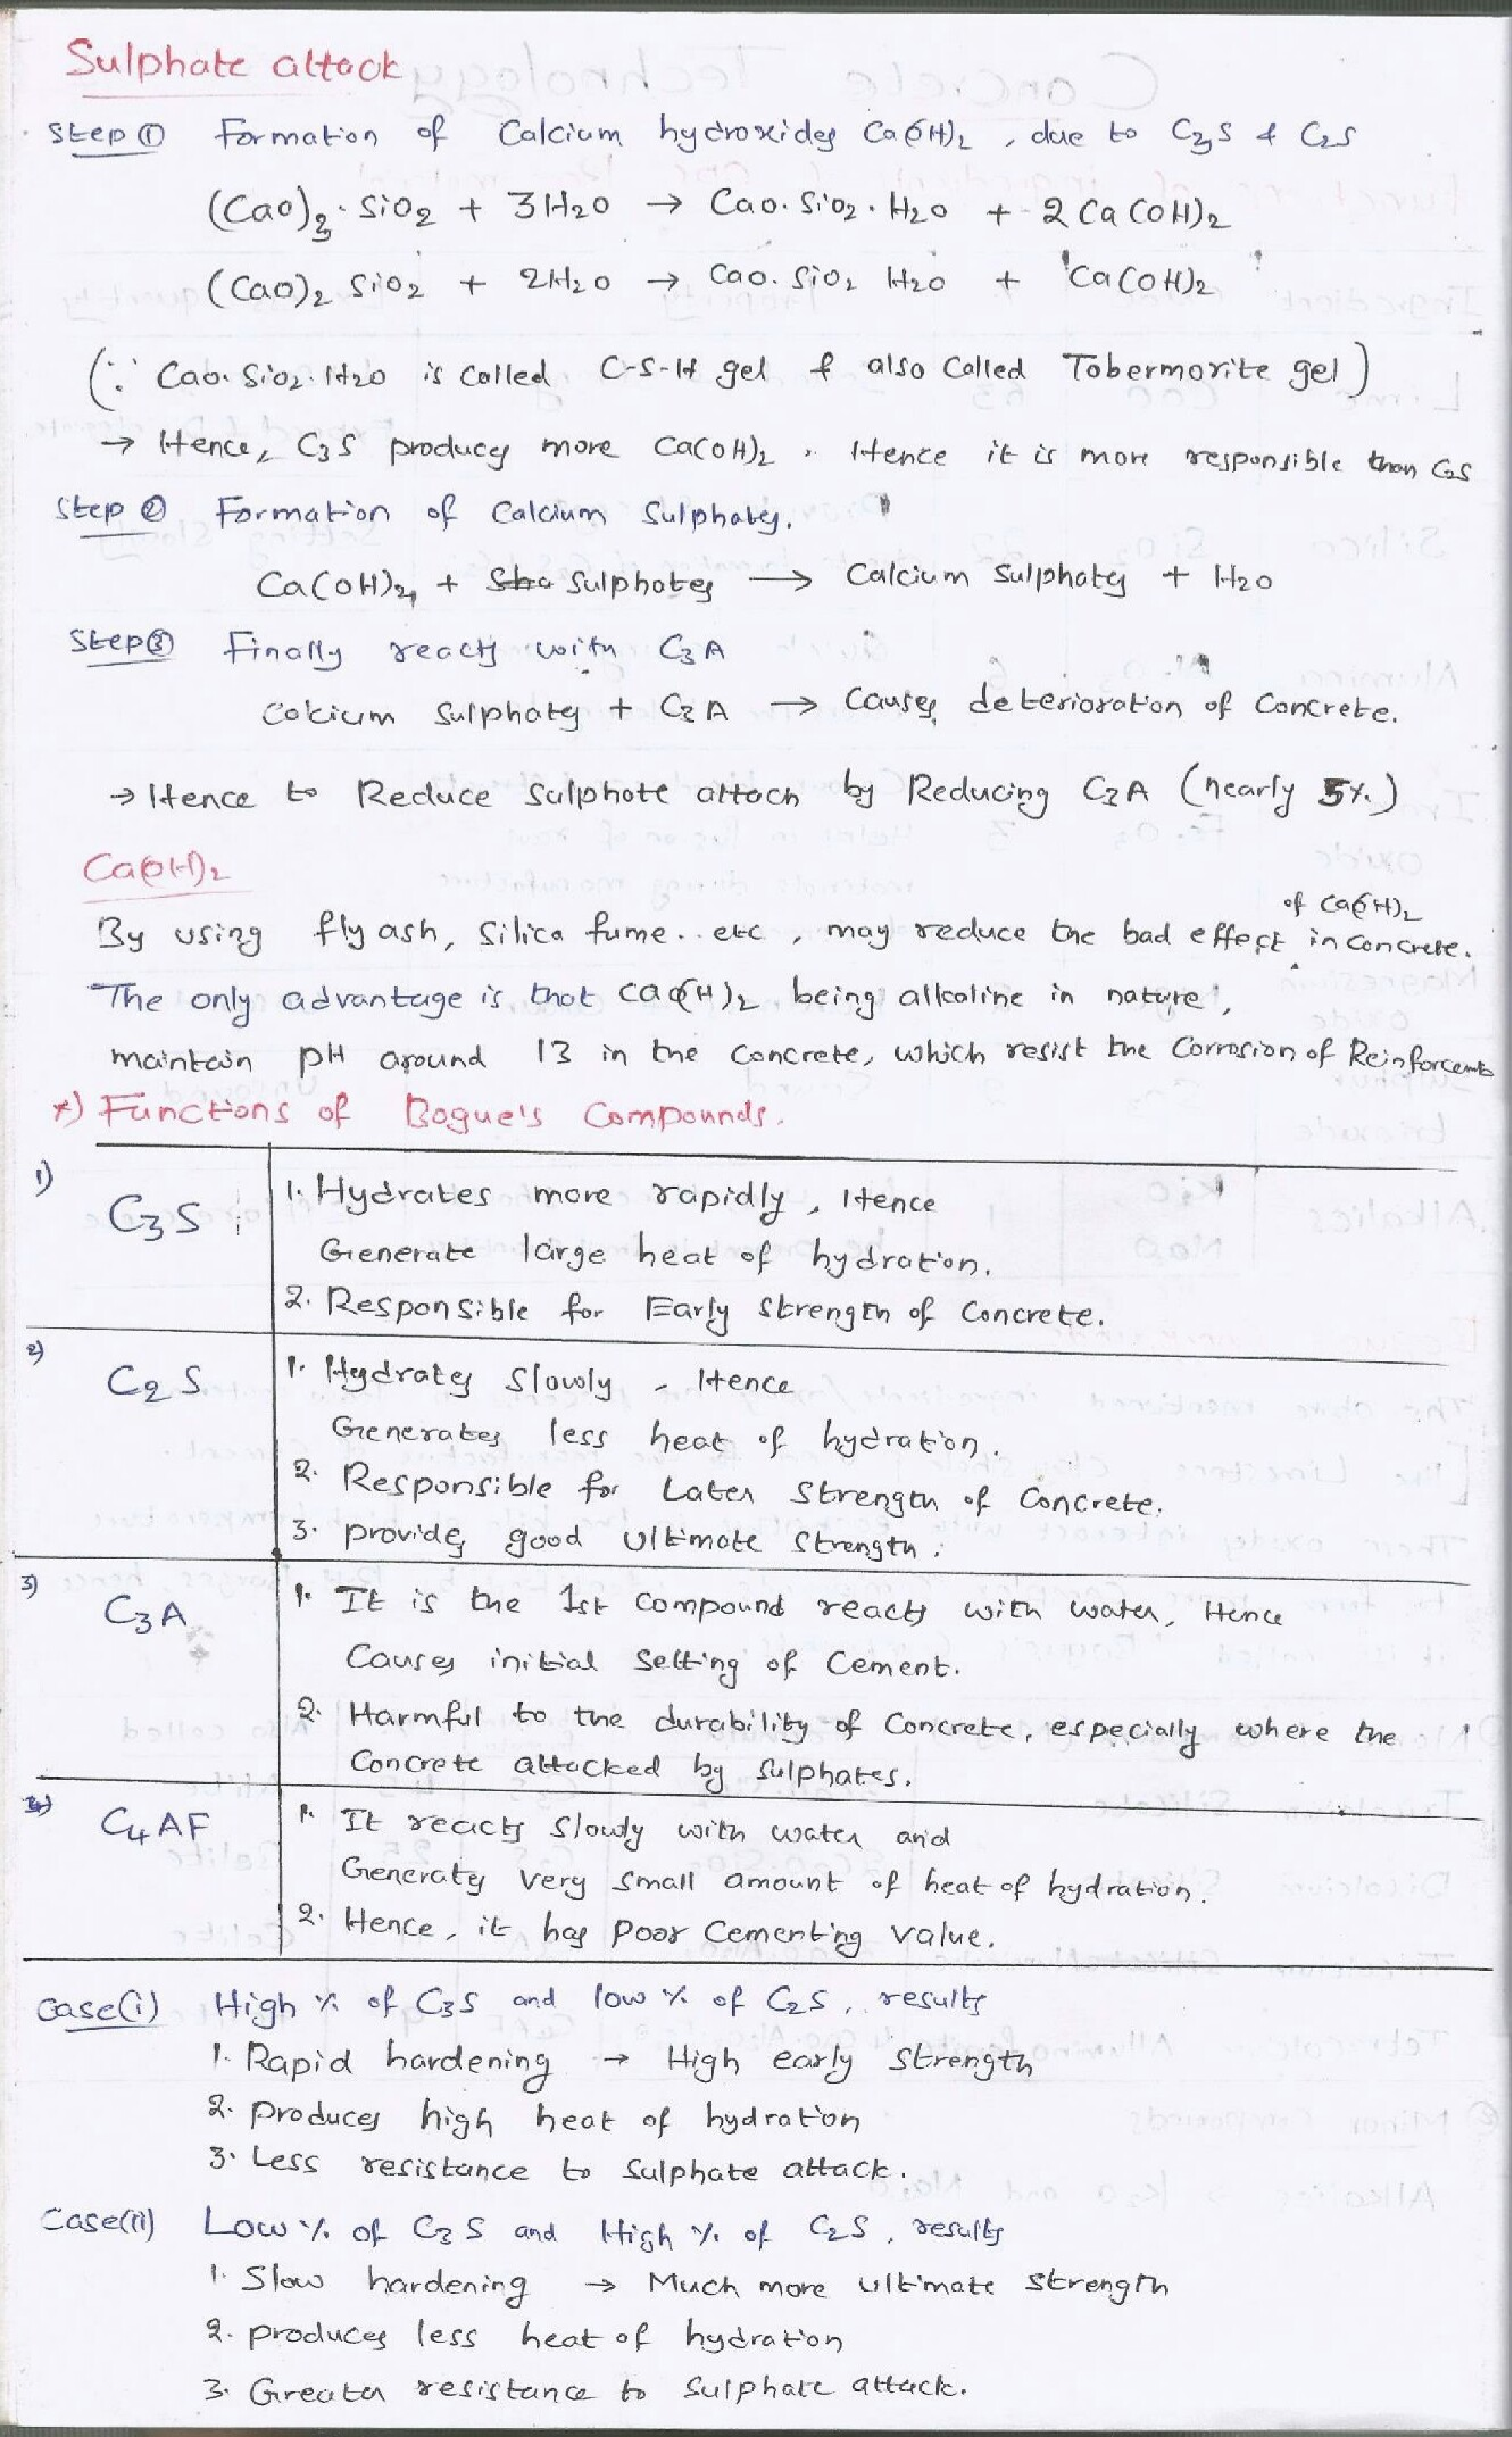 Sulphate attack
Step ① Formation of Calcium hydroxides Ca(OH)₂, due to C₃S & C₂S
(CaO)₃·SiO₂ + 3H₂O → CaO·SiO₂·H₂O + 2Ca(OH)₂
(CaO)₂ SiO₂ + 2H₂O → CaO·SiO₂ H₂O + Ca(OH)₂
(∵ CaO·SiO₂·H₂O is called C-S-H gel & also Called Tobermorite gel)
→ Hence, C₃S produces more Ca(OH)₂. Hence it is more responsible than C₂S
Step ② Formation of Calcium Sulphates.
Ca(OH)₂ + Sulphates → Calcium Sulphates + H₂O
Step ③ Finally reacts with C₃A
Calcium Sulphates + C₃A → Causes deterioration of Concrete.
→ Hence to Reduce Sulphate attack by Reducing C₃A (nearly 5%.)
Ca(OH)₂
of Ca(OH)₂
By using flyash, Silica fume.. etc, may reduce the bad effect in concrete.
The only advantage is that Ca(OH)₂ being alkaline in nature,
maintain pH around 13 in the concrete, which resist the Corrosion of Reinforcements
*) Functions of Bogue's Compounds.
1) C₃S
1. Hydrates more rapidly, Hence
Generate large heat of hydration.
2. Responsible for Early Strength of Concrete.
2) C₂S
1. Hydrates Slowly, Hence
Generates less heat of hydration.
2. Responsible for Later Strength of Concrete.
3. provides good Ultimate Strength.
3) C₃A
1. It is the 1st Compound reacts with water, Hence
Causes initial Setting of Cement.
2. Harmful to the durability of Concrete, especially where the
Concrete attacked by Sulphates.
4) C₄AF
1. It reacts Slowly with water and
Generates very small amount of heat of hydration.
2. Hence, it has poor Cementing value.
Case(i) High % of C₃S and low % of C₂S, results
1. Rapid hardening → High early Strength
2. Produces high heat of hydration
3. Less resistance to Sulphate attack.
Case(ii) Low % of C₃S and High % of C₂S, results
1. Slow hardening → Much more Ultimate Strength
2. produces less heat of hydration
3. Greater resistance to Sulphate attack.